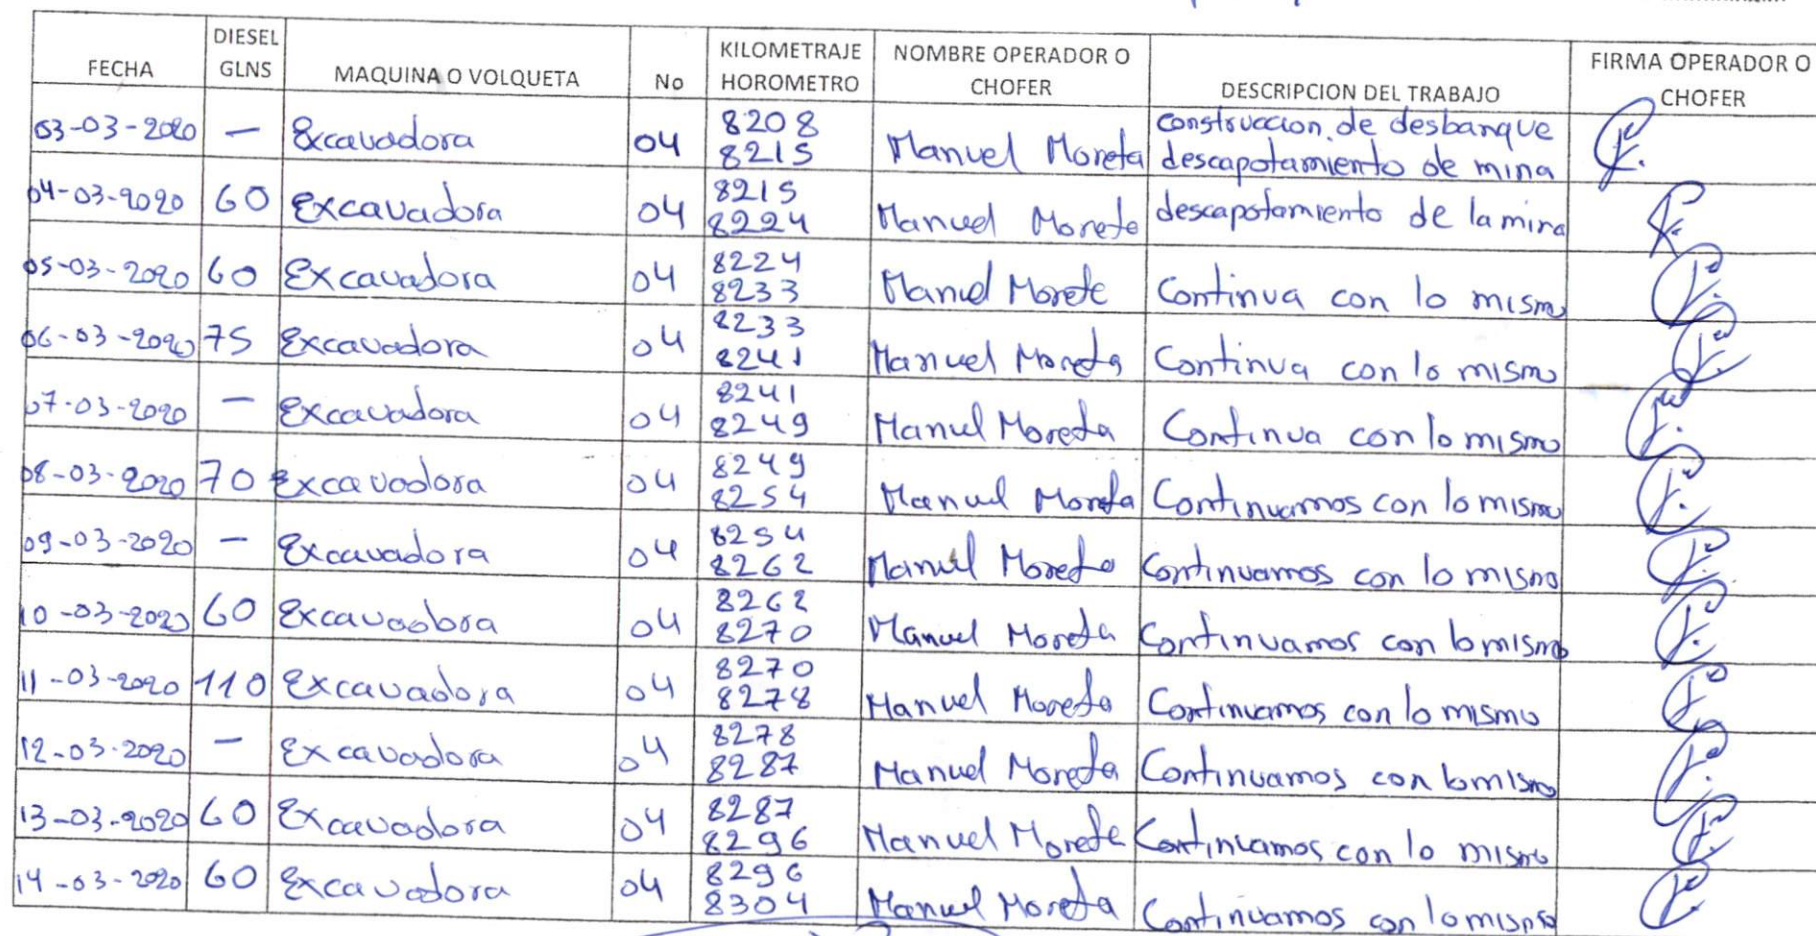 FECHA | DIESEL GLNS | MAQUINA O VOLQUETA | No | KILOMETRAJE HOROMETRO | NOMBRE OPERADOR O CHOFER | DESCRIPCION DEL TRABAJO | FIRMA OPERADOR O CHOFER
03-03-2020 | — | Excavadora | 04 | 8208 8215 | Manuel Moreta | construccion de desbanque descapotamiento de mina
04-03-2020 | 60 | Excavadora | 04 | 8215 8224 | Manuel Moreta | descapotamiento de la mina
05-03-2020 | 60 | Excavadora | 04 | 8224 8233 | Manuel Moreta | Continua con lo mismo
06-03-2020 | 75 | Excavadora | 04 | 8233 8241 | Manuel Moreta | Continua con lo mismo
07-03-2020 | — | Excavadora | 04 | 8241 8249 | Manuel Moreta | Continua con lo mismo
08-03-2020 | 70 | Excavadora | 04 | 8249 8254 | Manuel Moreta | Continuamos con lo mismo
09-03-2020 | — | Excavadora | 04 | 8254 8262 | Manuel Moreta | Continuamos con lo mismo
10-03-2020 | 60 | Excavadora | 04 | 8262 8270 | Manuel Moreta | Continuamos con lo mismo
11-03-2020 | 110 | Excavadora | 04 | 8270 8278 | Manuel Moreta | Continuamos con lo mismo
12-03-2020 | — | Excavadora | 04 | 8278 8287 | Manuel Moreta | Continuamos con lo mismo
13-03-2020 | 60 | Excavadora | 04 | 8287 8296 | Manuel Moreta | Continuamos con lo mismo
14-03-2020 | 60 | Excavadora | 04 | 8296 8304 | Manuel Moreta | Continuamos con lo mismo